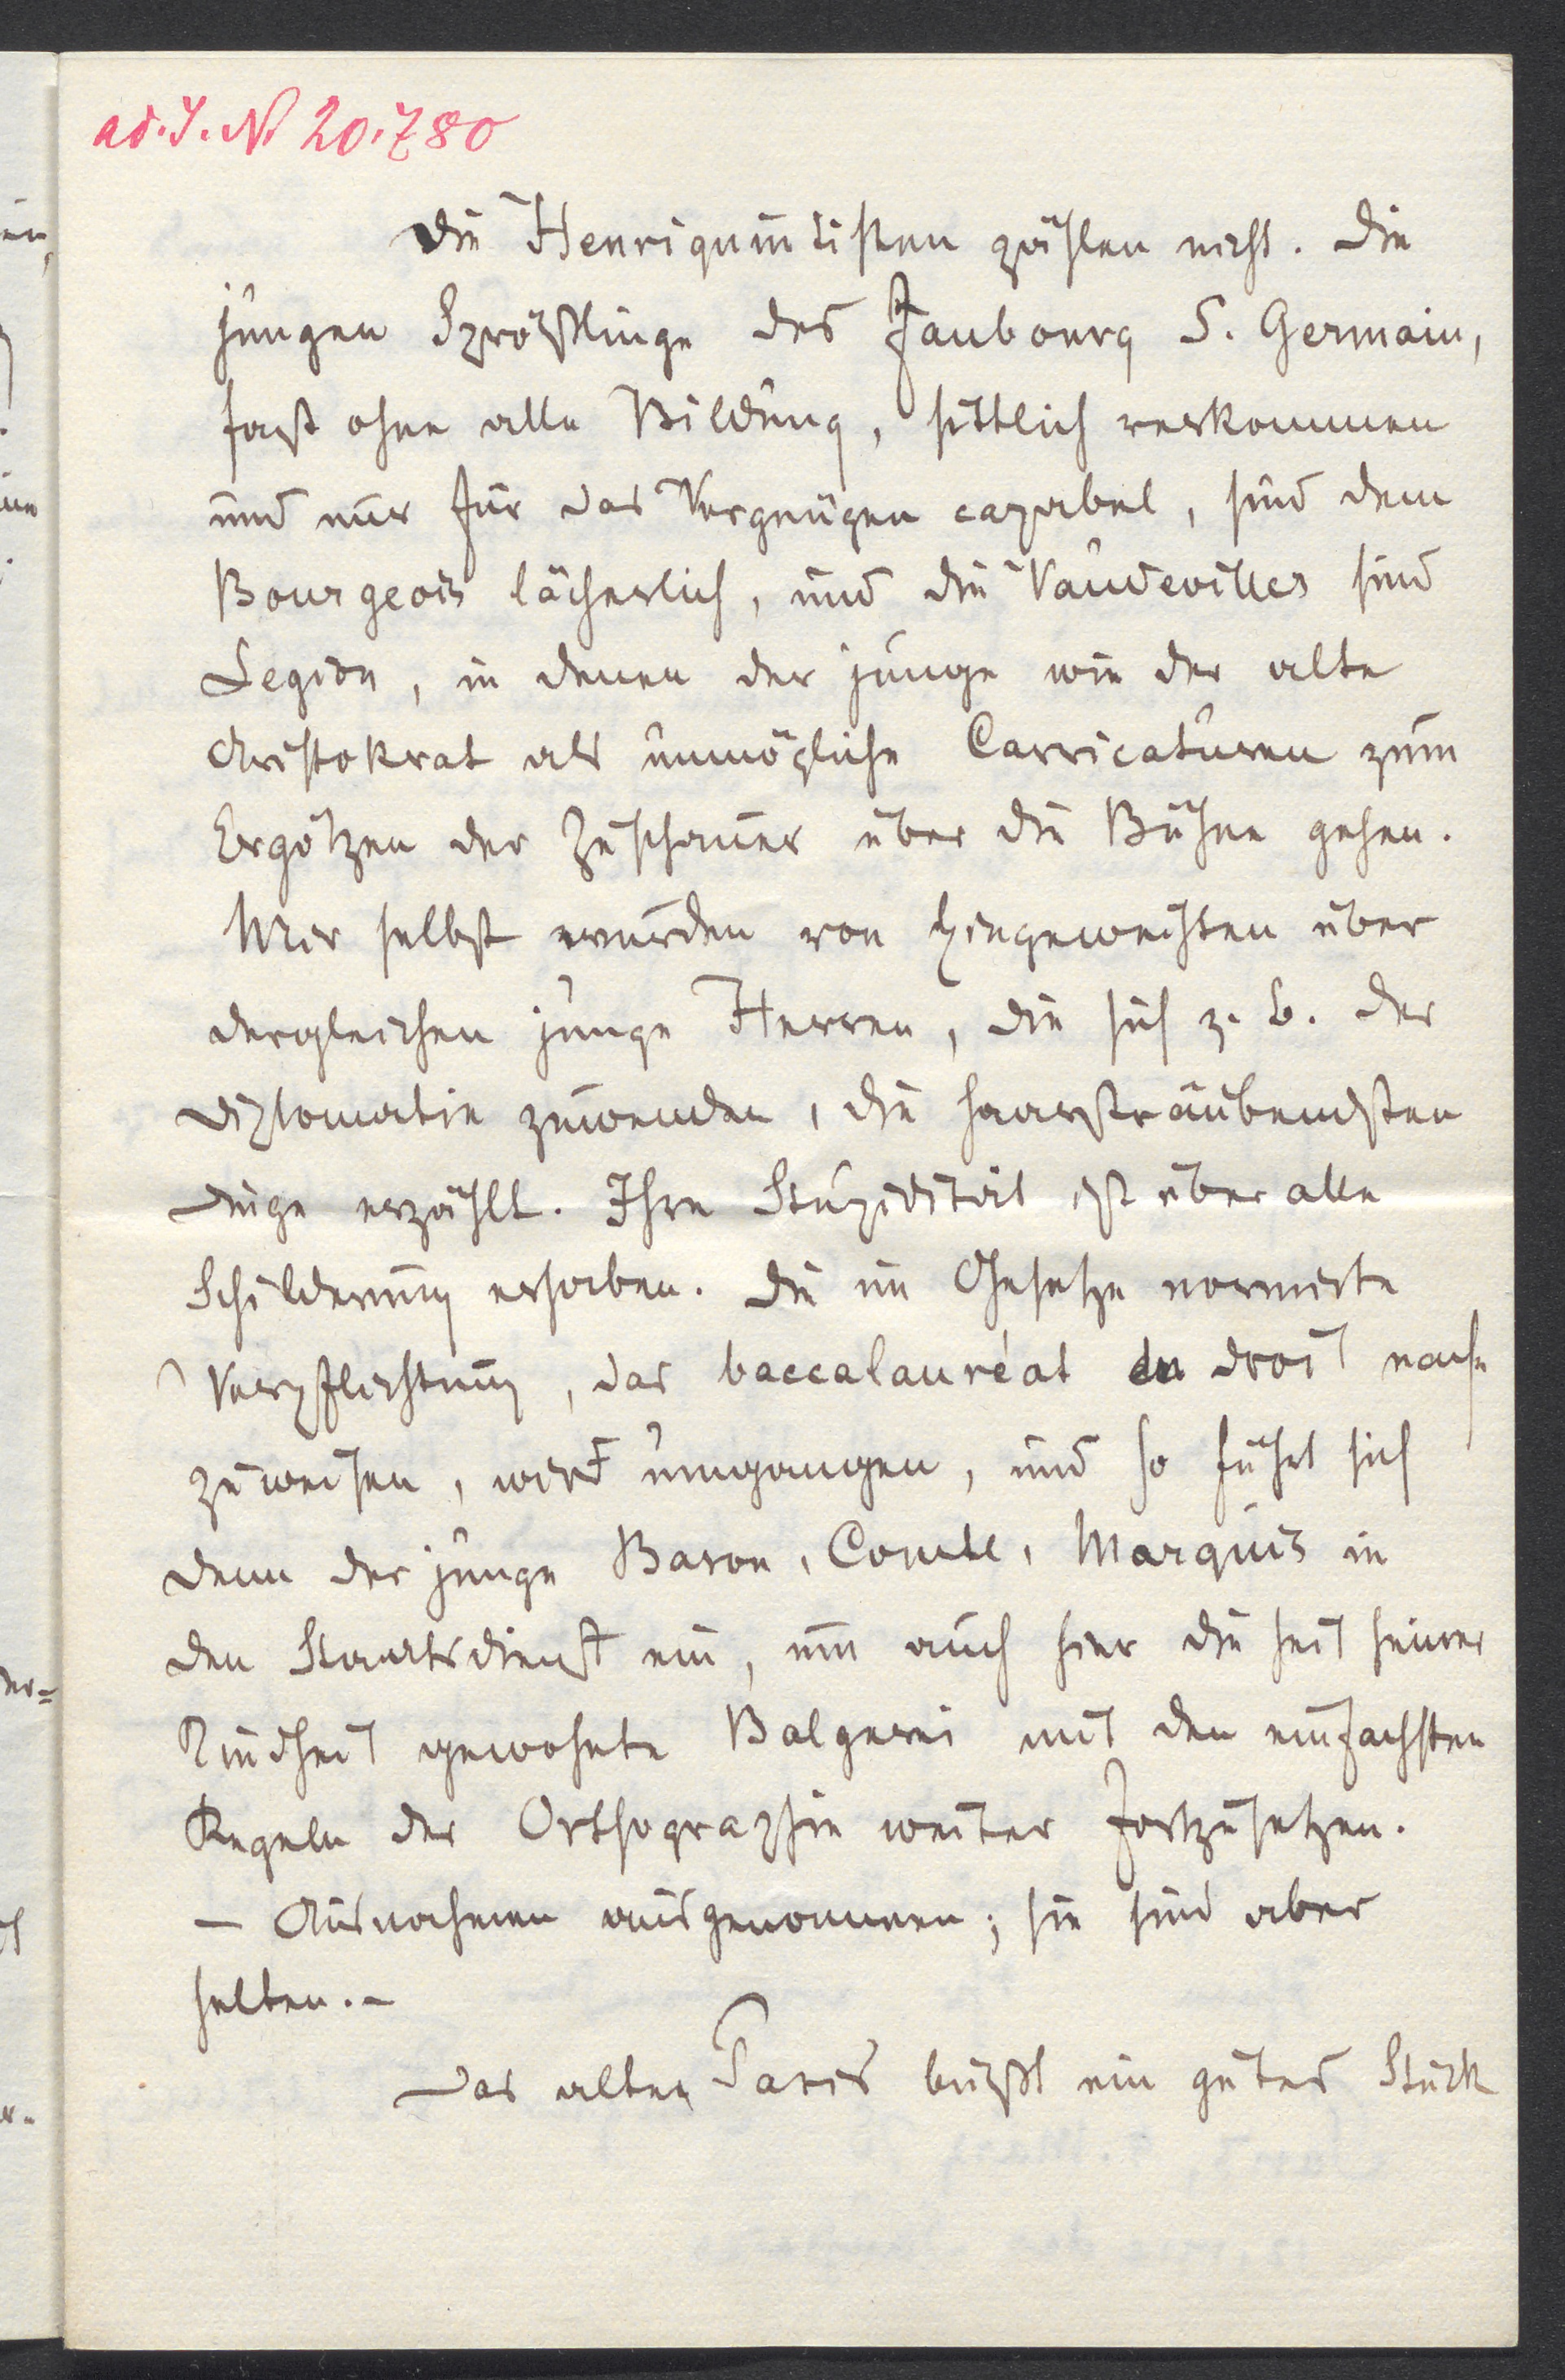 ad. I. N. 20.780
Die Henriquintisten zählen nicht. Die
jungen Sprößlinge des Faubourg S. Germain,
fast ohne alle Bildung, sittlich verkommen
und nur für das Vergnügen capabel, sind dem
Bourgeois lächerlich, und die Vaudevilles sind
Legion, in denen der junge wie der alte
Aristokrat als unmögliche Carricaturen zum
Ergötzen der Zuschauer über die Bühne gehen.
Mir selbst wurden von Eingeweihten über
dergleichen junge Herren, die sich z. B. der
Diplomatie zuwenden, die haarsträubendsten
Dinge erzählt. Ihre Stupidität ist über alle
Schilderung erhaben. Die im Gesetze normirte
Verpflichtung, das baccalauréat en droit nach-
zuweisen, wird umgangen, und so führt sich
denn der junge Baron, Comte, Marquis in
den Staatsdienst ein, um auch hier die seit seiner
Kindheit gewohnte Balgerei mit den einfachsten
Regeln der Orthographie weiter fortzusetzen.
– Ausnahmen ausgenommen; sie sind aber
selten. –
Das alte Paris büßt ein gutes Stück